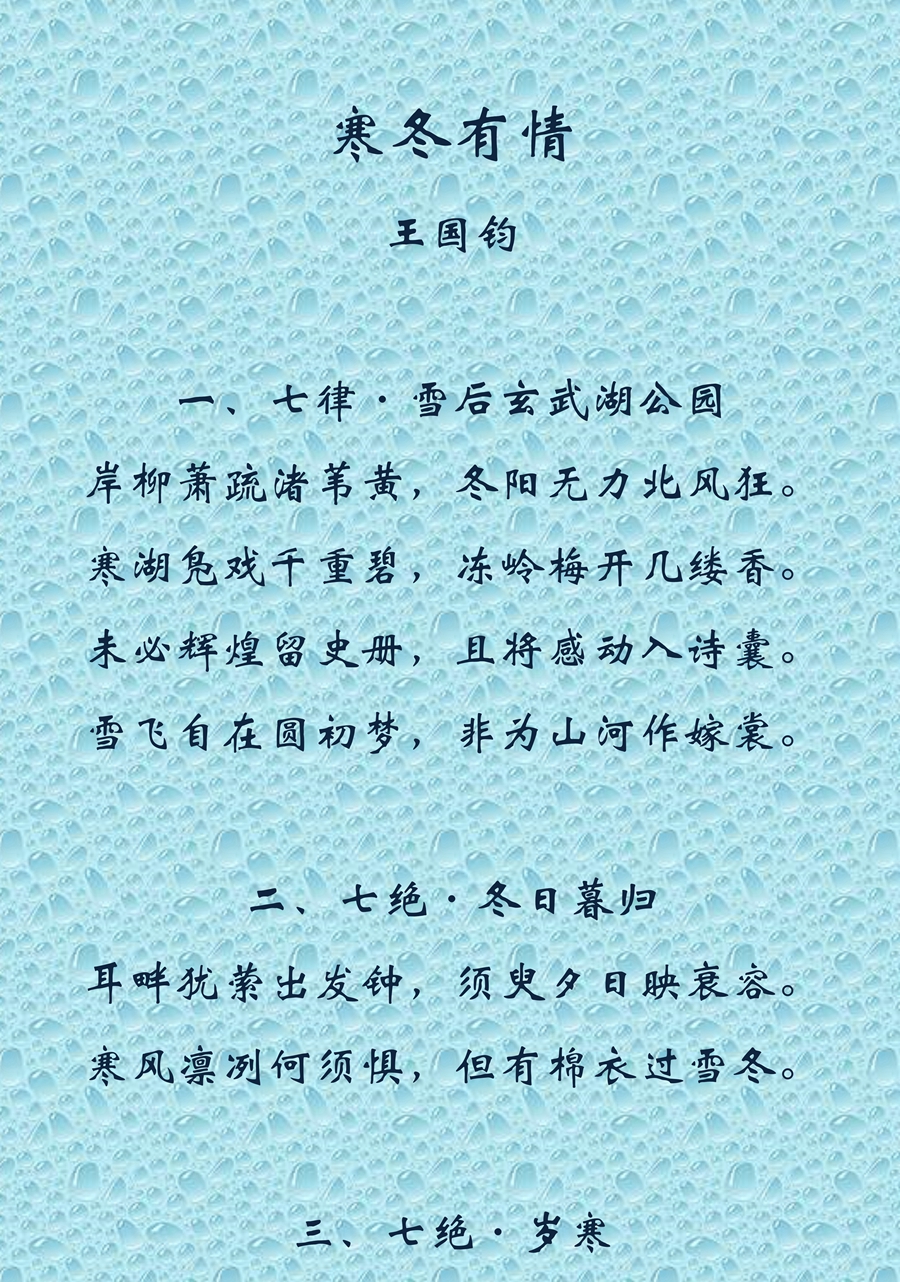 寒冬有情
王国钧
一、七律·雪后玄武湖公园
岸柳萧疏渚苇黄，冬阳无力北风狂。
寒湖凫戏千重碧，冻岭梅开几缕香。
未必辉煌留史册，且将感动入诗囊。
雪飞自在圆初梦，非为山河作嫁裳。
二、七绝·冬日暮归
耳畔犹萦出发钟，须臾夕日映衰容。
寒风凛冽何须惧，但有棉衣过雪冬。
三、七绝·岁寒